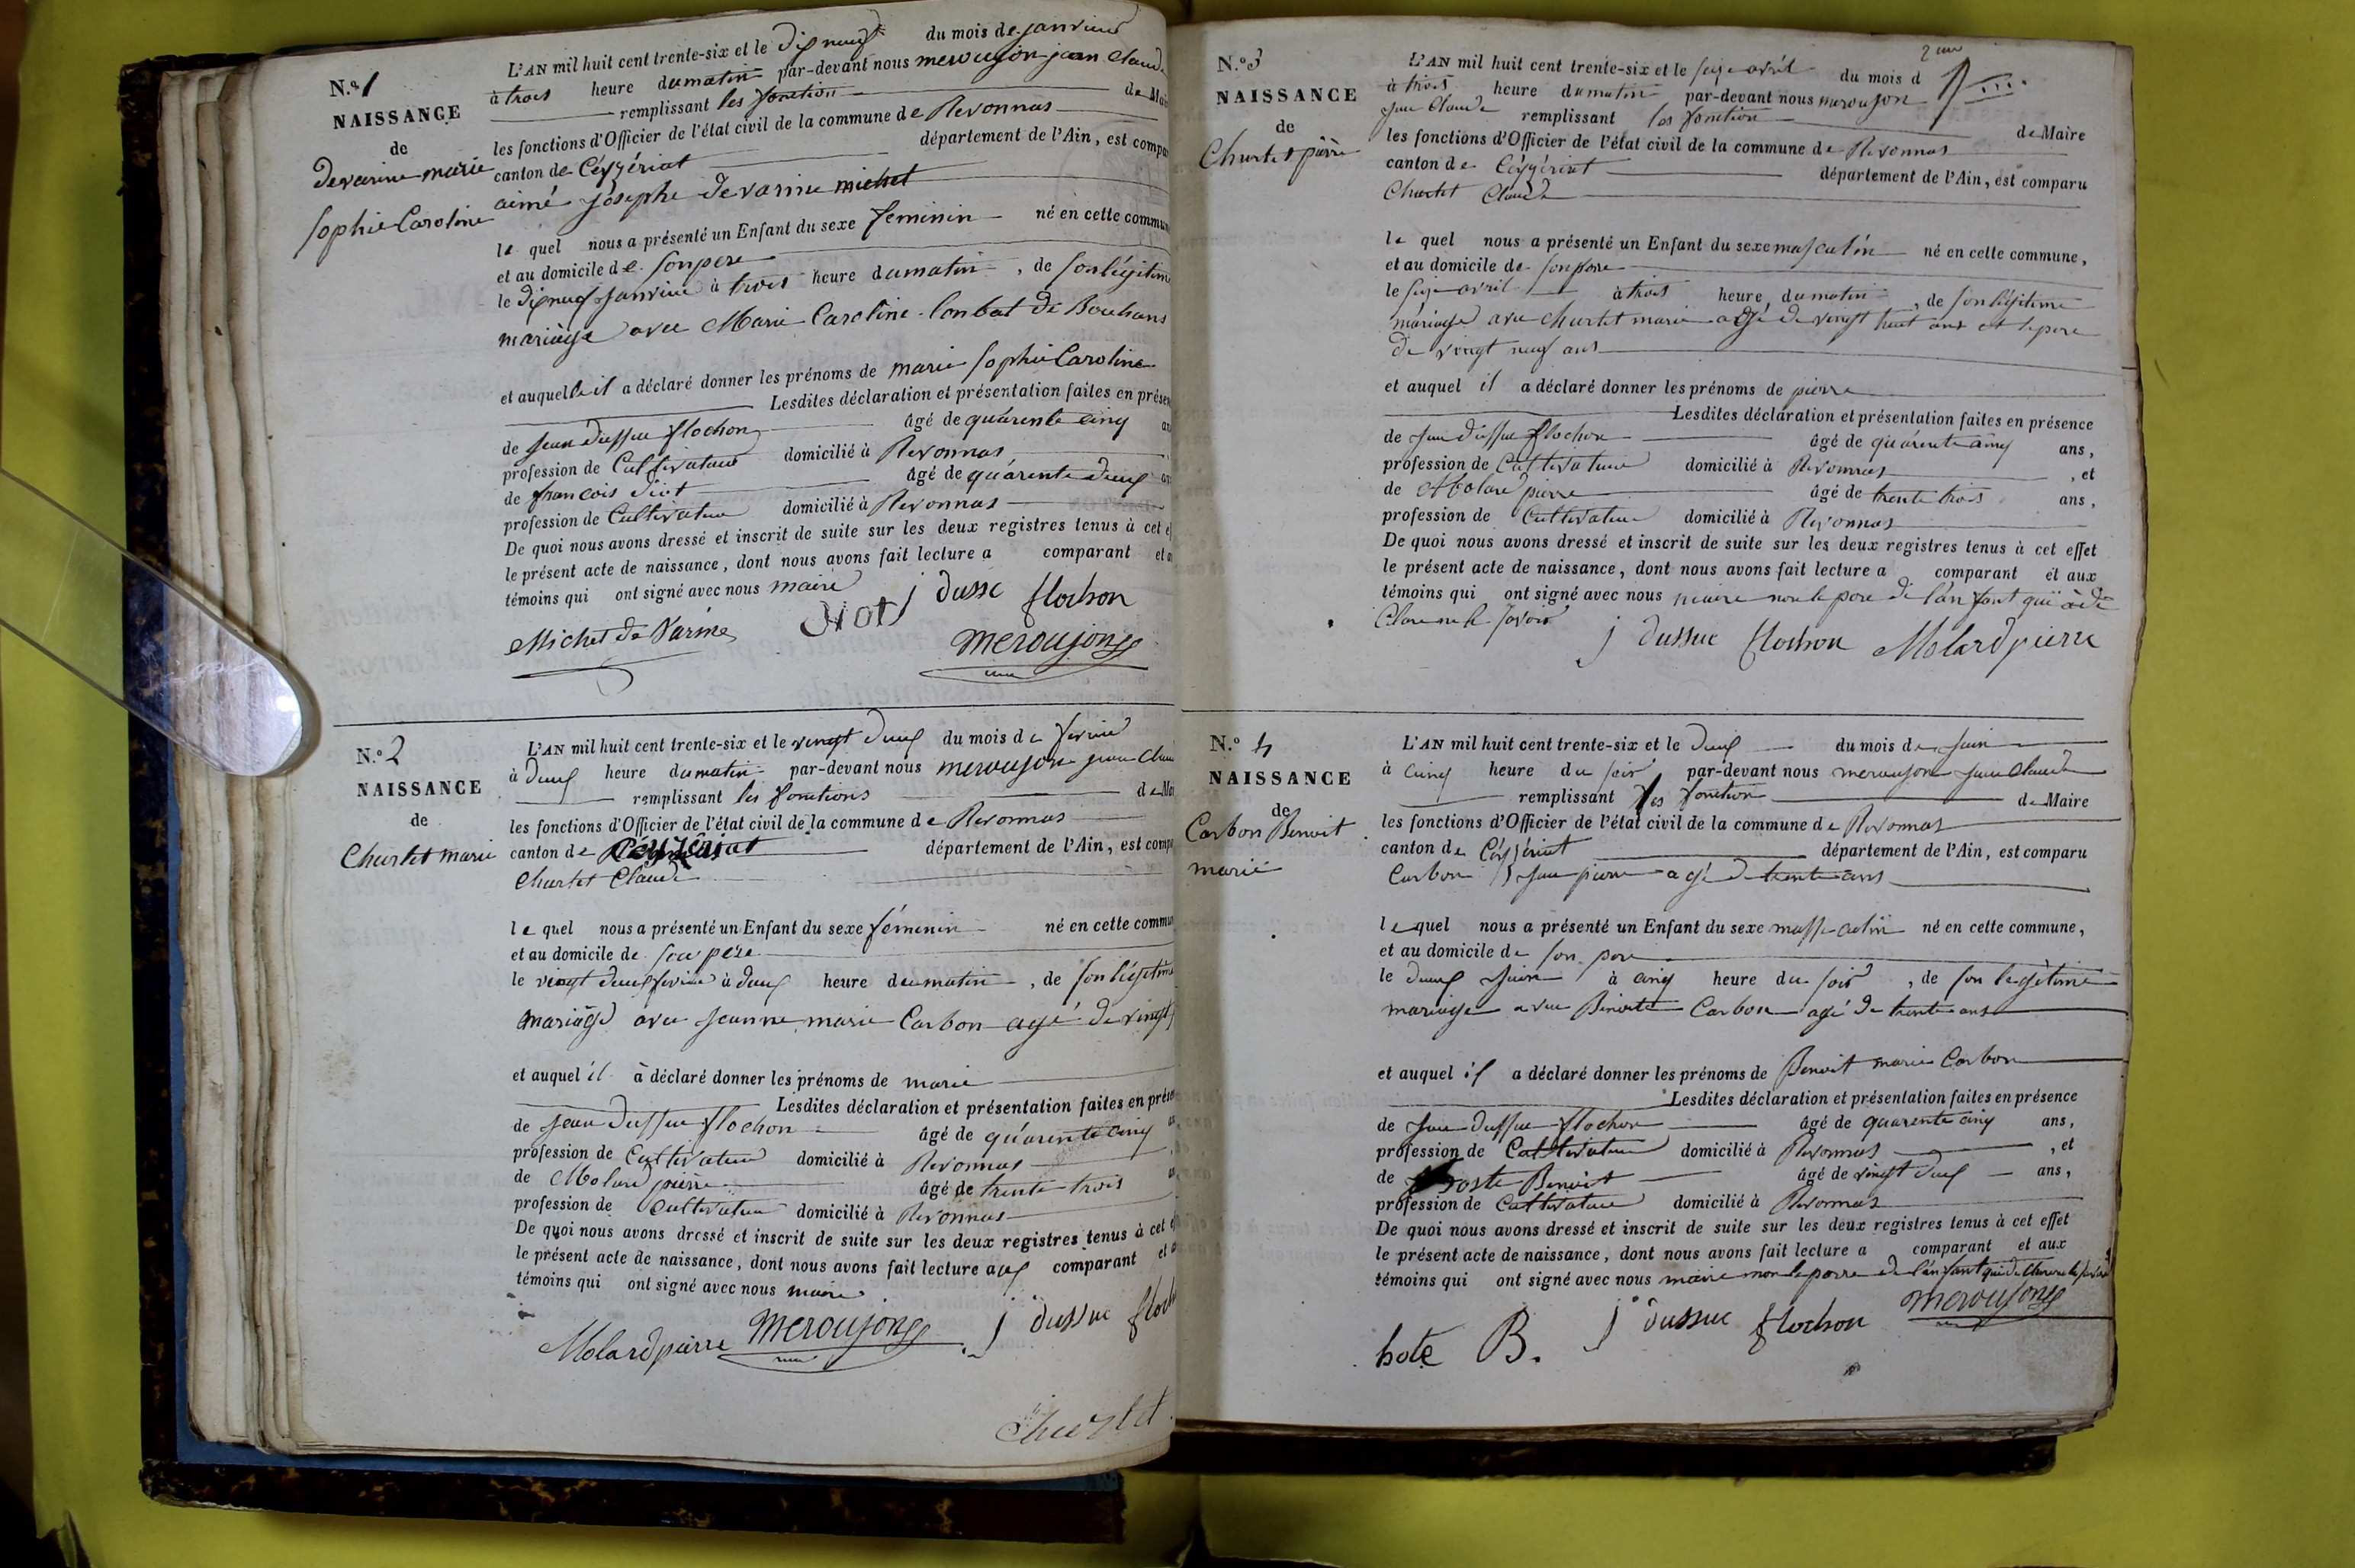 N.º 1
NAISSANCE
de
devarine marie
Sophie Caroline
L'AN mil huit cent trente-six et le dixneuf du mois de janvier
à trois heure du matin par-devant nous meroujon jean Claude
remplissant les fonction de Mair
les fonctions d'Officier de l'état civil de la commune de Revonnas
canton de Céyzériat département de l'Ain, est compa
aimé josephe devarine michet
le quel nous a présenté un Enfant du sexe feminin né en cette commun
et au domicile de son pere
le dixneuf janvier à trois heure du matin, de son légitime
mariage avec Marie Caroline Conbat de Bouhans
et auquelle il a déclaré donner les prénoms de marie Sophie Caroline
Lesdites déclaration et présentation faites en présen
de jean dussue flochon âgé de quárente cinq an
profession de Cultivateur domicilié à Revonnas
de francois diot âgé de quárente deux an
profession de Cultivateur domicilié à Revonnas
De quoi nous avons dressé et inscrit de suite sur les deux registres tenus à cet e
le présent acte de naissance, dont nous avons fait lecture a comparant et a
témoins qui ont signé avec nous maire
Michet de Varine Diot j dussc flochon
meroujon
N.º 2
NAISSANCE
de
Chartet marie
L'AN mil huit cent trente-six et le vingt deux du mois de fevrier
à deux heure du matin par-devant nous meroujon jean Clau
remplissant les fonctions de Mai
les fonctions d'Officier de l'état civil de la commune de Revonnas
canton de Céyzériat département de l'Ain, est compa
Chartet Claude
le quel nous a présenté un Enfant du sexe féminin né en cette commun
et au domicile de son pére
le vingt deux fevrier à deux heure du matin, de son légitime
mariage avec jeanne marie Carbon agé de vingt
et auquel il à déclaré donner les prénoms de marie
Lesdites déclaration et présentation faites en prése
de jean dussue flochon âgé de quárente cinq
profession de Cultivateur domicilié à Revonnas
de Molard pierre âgé de trente trois
profession de Cultivateur domicilié à Revonnas
De quoi nous avons dressé et inscrit de suite sur les deux registres tenus à cet e
le présent acte de naissance, dont nous avons fait lecture aux comparant et a
témoins qui ont signé avec nous maire
Molard pierre meroujon j dussuc floch
Chartet
2
N.º 3
NAISSANCE
de
Chartet pierre
L'AN mil huit cent trente-six et le seize avril du mois d
à trois heure du matin par-devant nous meroujon
jean Claude remplissant les fonction de Maire
les fonctions d'Officier de l'état civil de la commune de Revonnas
canton de Céyzériat département de l'Ain, est comparu
Chartet Claude
le quel nous a présenté un Enfant du sexe masculin né en cette commune,
et au domicile de son pere
le seize avril à trois heure, du matin, de son légitime
mariage avec chartet marie agé de vingt huit ans et le pere
de vingt neuf ans
et auquel il a déclaré donner les prénoms de pierre
Lesdites déclaration et présentation faites en présence
de jean dussue flochon âgé de quárente cinq ans,
profession de Cultivateur domicilié à Revonnas, et
de Molard pierre âgé de trente trois ans,
profession de Cultivateur domicilié à Revonnas
De quoi nous avons dressé et inscrit de suite sur les deux registres tenus à cet effet
le présent acte de naissance, dont nous avons fait lecture a comparant et aux
témoins qui ont signé avec nous maire non le pere de l'anfant qui à dé
Clare ne le savoir
j dussuc flochon Molard pierre
N.º 4
NAISSANCE
de
Carbon Benoit
marie
L'AN mil huit cent trente-six et le deux du mois de juin
à cinq heure du soir par-devant nous meroujon jean Claude
remplissant les fonction de Maire
les fonctions d'Officier de l'état civil de la commune de Revonnas
canton de Céyzériat département de l'Ain, est comparu
Carbon jean pierre agé de trente ans
le quel nous a présenté un Enfant du sexe masseculin né en cette commune,
et au domicile de son pere
le deux juin à cinq heure du soir, de son legitime
mariage avec Benoite Carbon agé de trente ans
et auquel il a déclaré donner les prénoms de Benoit marie Carbon
Lesdites déclaration et présentation faites en présence
de jean dussue flochon âgé de quarente cinq ans,
profession de Cultivateur domicilié à Revonnas, et
de hoste Benoit âgé de vingt deux ans,
profession de Cultivateur domicilié à Revonnas
De quoi nous avons dressé et inscrit de suite sur les deux registres tenus à cet effet
le présent acte de naissance, dont nous avons fait lecture a comparant et aux
témoins qui ont signé avec nous maire non le perre de l'anfant qui de clare ne le savoir
hote B. j dussuc flochon meroujon